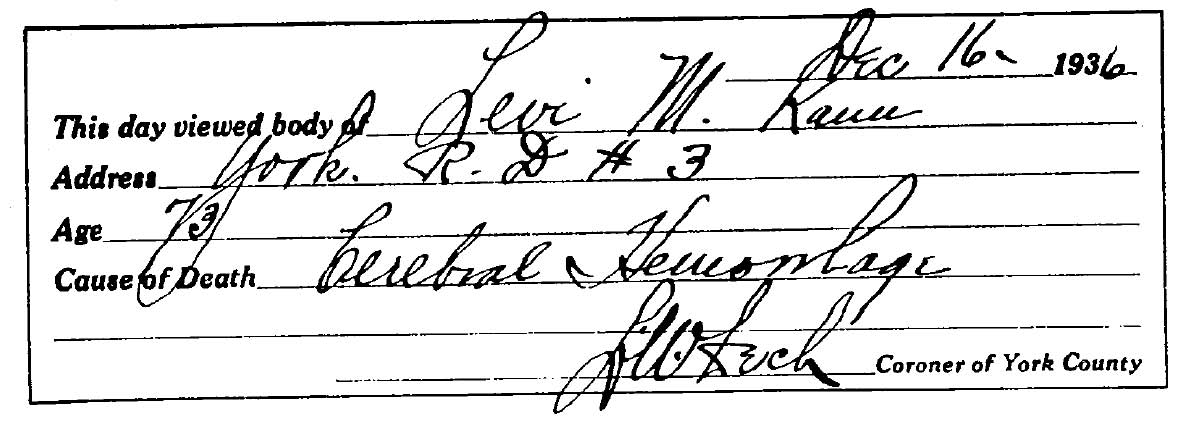 Dec 16 1936
This day viewed body of Levi M. Rauu
Address York. R. D # 3
Age 73
Cause of Death Cerebral Hemorrhage
Coroner of York County